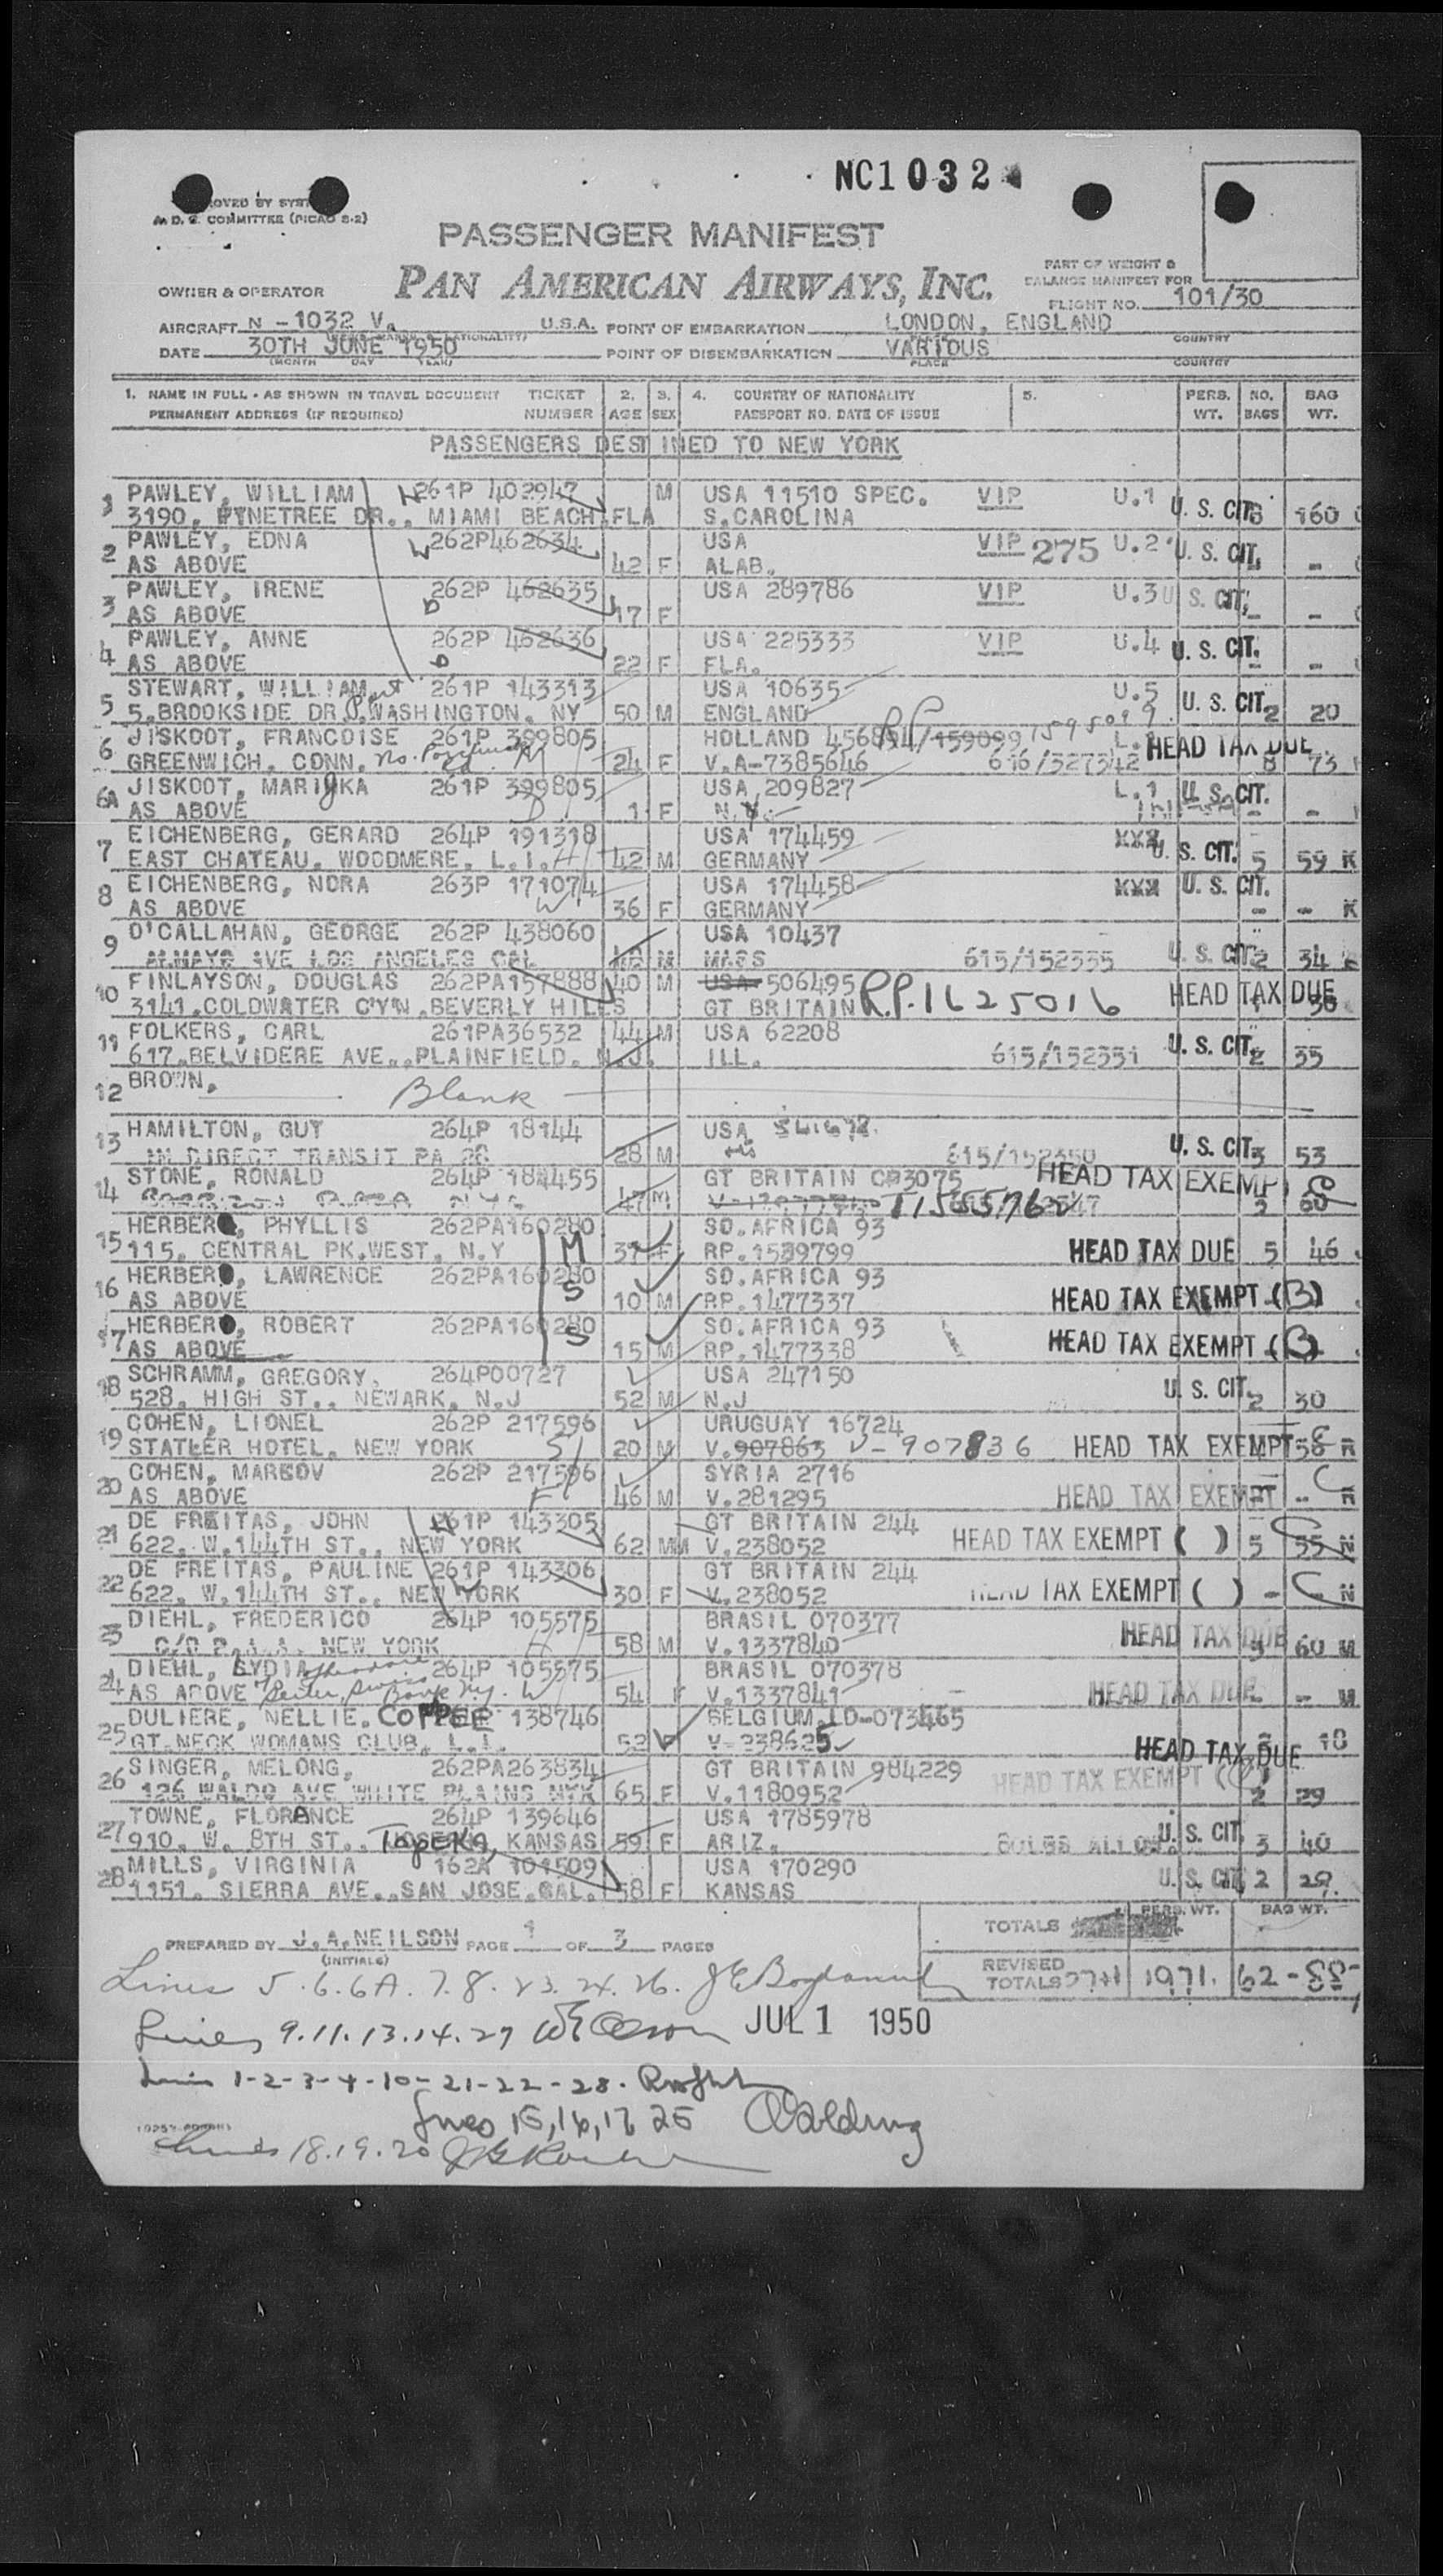 NC1032
PASSENGER MANIFEST
COMMITTEE (PICAO S-2)
PAN AMERICAN AIRWAYS, INC.
PART OF WEIGHT &
BALANCE MANIFEST FOR
OWNER & OPERATOR
FLIGHT NO. 101/30
AIRCRAFT N -1032 V. U.S.A. POINT OF EMBARKATION LONDON, ENGLAND
DATE 30TH JUNE 1950 POINT OF DISEMBARKATION VARIOUS
(MONTH DAY YEAR) PLACE COUNTRY
1. NAME IN FULL - AS SHOWN IN TRAVEL DOCUMENT TICKET 2. 3. 4. COUNTRY OF NATIONALITY 5. PERS. NO. BAG
PERMANENT ADDRESS (IF REQUIRED) NUMBER AGE SEX PASSPORT NO. DATE OF ISSUE WT. BAGS WT.
PASSENGERS DESTINED TO NEW YORK
1 PAWLEY, WILLIAM 261P 402947 M USA 11510 SPEC. VIP U.1 U. S. CIT.
3190, PYNETREE DR., MIAMI BEACH,FLA S.CAROLINA 160
2 PAWLEY, EDNA 262P462634 USA VIP 275 U.2 U. S. CIT.
AS ABOVE 42 F ALAB. -
3 PAWLEY, IRENE 262P 462635 USA 289786 VIP U.3 U. S. CIT.
AS ABOVE 17 F - -
4 PAWLEY, ANNE 262P 462636 USA 225333 VIP U.4 U. S. CIT.
AS ABOVE 22 F FLA. - -
5 STEWART, WILLIAM 261P 143313 USA 10635 U.5 U. S. CIT.
5.BROOKSIDE DR.P.WASHINGTON. NY 50 M ENGLAND 2 20
6 JISKOOT, FRANCOISE 261P 399805 HOLLAND HEAD TAX DUE
GREENWICH, CONN. 24 F V.A-7385646 616/327342 8 73
6A JISKOOT, MARIJKA 261P 399805 USA 209827 L.1 U. S. CIT.
AS ABOVE 1 F N.Y. - -
7 EICHENBERG, GERARD 264P 191318 USA 174459 XXX U. S. CIT.
EAST CHATEAU. WOODMERE. L.I. H 42 M GERMANY 5 59 K
8 EICHENBERG, NORA 263P 171074 USA 174458 XXX U. S. CIT.
AS ABOVE W 36 F GERMANY - - K
9 O'CALLAHAN, GEORGE 262P 438060 USA 10437
AVE LOS ANGELES CAL M MASS 615/152335 U. S. CIT. 2 34
10 FINLAYSON, DOUGLAS 262PA157888 40 M USA 506495 R.P.1625016 HEAD TAX DUE
3141.COLDWATER C'Y'N.BEVERLY HILLS GT BRITAIN 30
11 FOLKERS, CARL 261PA36532 44 M USA 62208 U. S. CIT.
617.BELVIDERE AVE..PLAINFIELD. N.J. ILL. 615/152351 2 35
12 BROWN, Blank
13 HAMILTON, GUY 264P 18144 USA
IN DIRECT TRANSIT PA 28 M 615/152350 U. S. CIT. 3 53
14 STONE, RONALD GT BRITAIN HEAD TAX EXEMPT
47 M
15 HERBER, PHYLLIS 262PA160280 M SO.AFRICA 93
115. CENTRAL PK.WEST. N.Y F RP.1539799 HEAD TAX DUE 5 46
16 HERBER, LAWRENCE 262PA160280 S SO.AFRICA 93
AS ABOVE 10 M RP.1477337 HEAD TAX EXEMPT (B)
17 HERBER, ROBERT 262PA160280 S SO.AFRICA 93
AS ABOVE 15 M RP.1477338 HEAD TAX EXEMPT (B)
18 SCHRAMM, GREGORY. 264P00727 USA 247150
528. HIGH ST.. NEWARK. N.J 52 M N.J U. S. CIT. 2 30
19 COHEN, LIONEL 262P 217596 URUGUAY 16724
STATLER HOTEL. NEW YORK S 20 M V.907863 V-907836 HEAD TAX EXEMPT 58 R
20 COHEN, MARKOV 262P 217596 SYRIA 2716
AS ABOVE F 46 M V.281295 HEAD TAX EXEMPT - R
21 DE FREITAS, JOHN 261P 143305 GT BRITAIN 244
622. W.144TH ST.. NEW YORK 62 M V.238052 HEAD TAX EXEMPT ( ) 5 55 N
22 DE FREITAS, PAULINE 261P 143306 GT BRITAIN 244
622. W.144TH ST.. NEW YORK 30 F V.238052 HEAD TAX EXEMPT ( ) - N
23 DIEHL, FREDERICO 264P 105575 BRASIL 070377
C/O P.A.A. NEW YORK H 58 M V.1337840 HEAD TAX DUE 60 M
24 DIEHL, LYDIA 264P 105575 BRASIL 070378
AS ABOVE W 54 F V.1337841 HEAD TAX DUE - M
25 DULIERE, NELLIE. COPPEE 138746 BELGIUM.LD-073465
GT.NECK WOMANS CLUB. L.I. F V-238625 HEAD TAX DUE 18
26 SINGER, MELONG, 262PA263834 GT BRITAIN 984229
126 WALDO AVE WHITE PLAINS NYK 65 F V.1180952 HEAD TAX EXEMPT 2 29
27 TOWNE, FLORANCE 264P 139646 USA 1785978
910. W. 8TH ST.. Topeka, KANSAS 59 F ARIZ. U. S. CIT. 3 40
28 MILLS, VIRGINIA 162A 101509 USA 170290
1151. SIERRA AVE..SAN JOSE.CAL. 58 F KANSAS U. S. CIT. 2 29.
TOTALS PERS. WT. BAG WT.
PREPARED BY J.A.NEILSON PAGE 1 OF 3 PAGES
(INITIALS)
REVISED TOTALS 27+1 1971. 62-
Lines 5.6.6A.7.8.23.24.26.
Lines 9.11.13.14.27 JUL 1 1950
Lines 1-2-3-4-10-21-22-28.
Lines 15,16,17 25
Lines 18.19.20